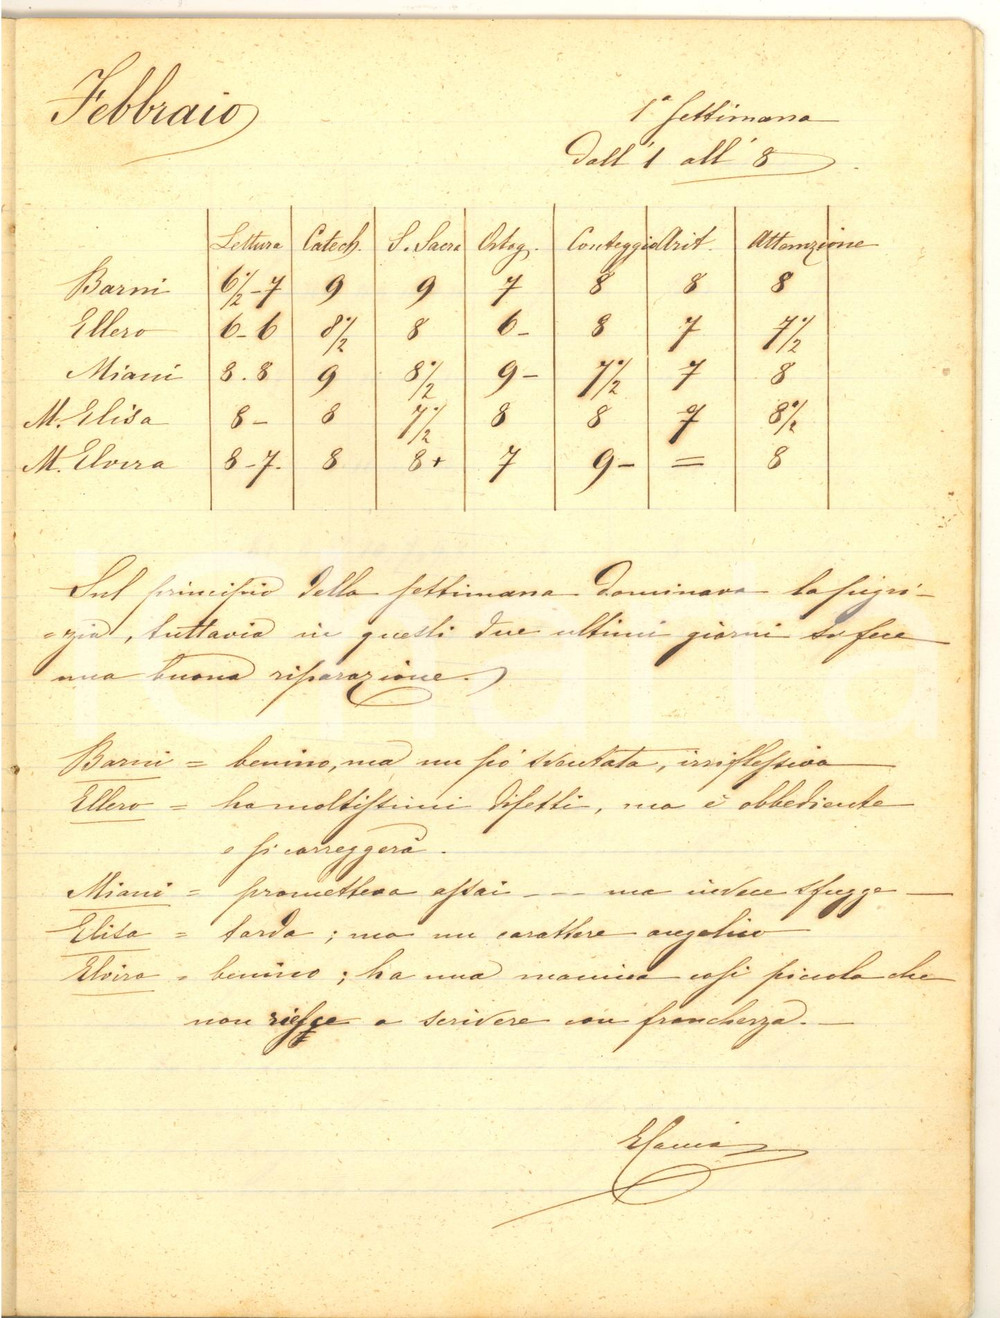 Febbraio
1ª Settimana
Dall' 1 all' 8
Lettura Catech. S. Sacra Ortog. Conteggio Arit. Attenzione
Barni 6 1/2 - 7 9 9 7 8 8 8
Ellero 6 - 6 8 1/2 8 6- 8 7 7 1/2
Miani 8 . 8 9 8 1/2 9- 7 1/2 7 8
M. Elisa 8- 8 7 1/2 8 8 7 8 1/2
M. Elvira 8 - 7. 8 8+ 7 9- = 8
Sul principio della settimana dominava la pigri-
=zia, tuttavia in questi due ultimi giorni si fece
una buona riparazione.
Barni = benino, ma un pó sventata, irriflessiva
Ellero = ha moltissimi difetti, ma è obbediente
e si correggerà.
Miani = prometteva assai - - - ma invece sfugge
Elisa = tarda; ma un carattere angelico
Elvira = benino; ha una manina così piccola che
non riesce a scrivere con franchezza. -
ICharta